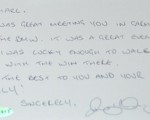 WAS GREAT MEETING YOU IN
THE BMW. IT WAS A GREAT EVENT
WAS LUCKY ENOUGH TO WALK
WITH THE WIN THERE.
THE BEST TO YOU AND YOUR
SINCERELY,